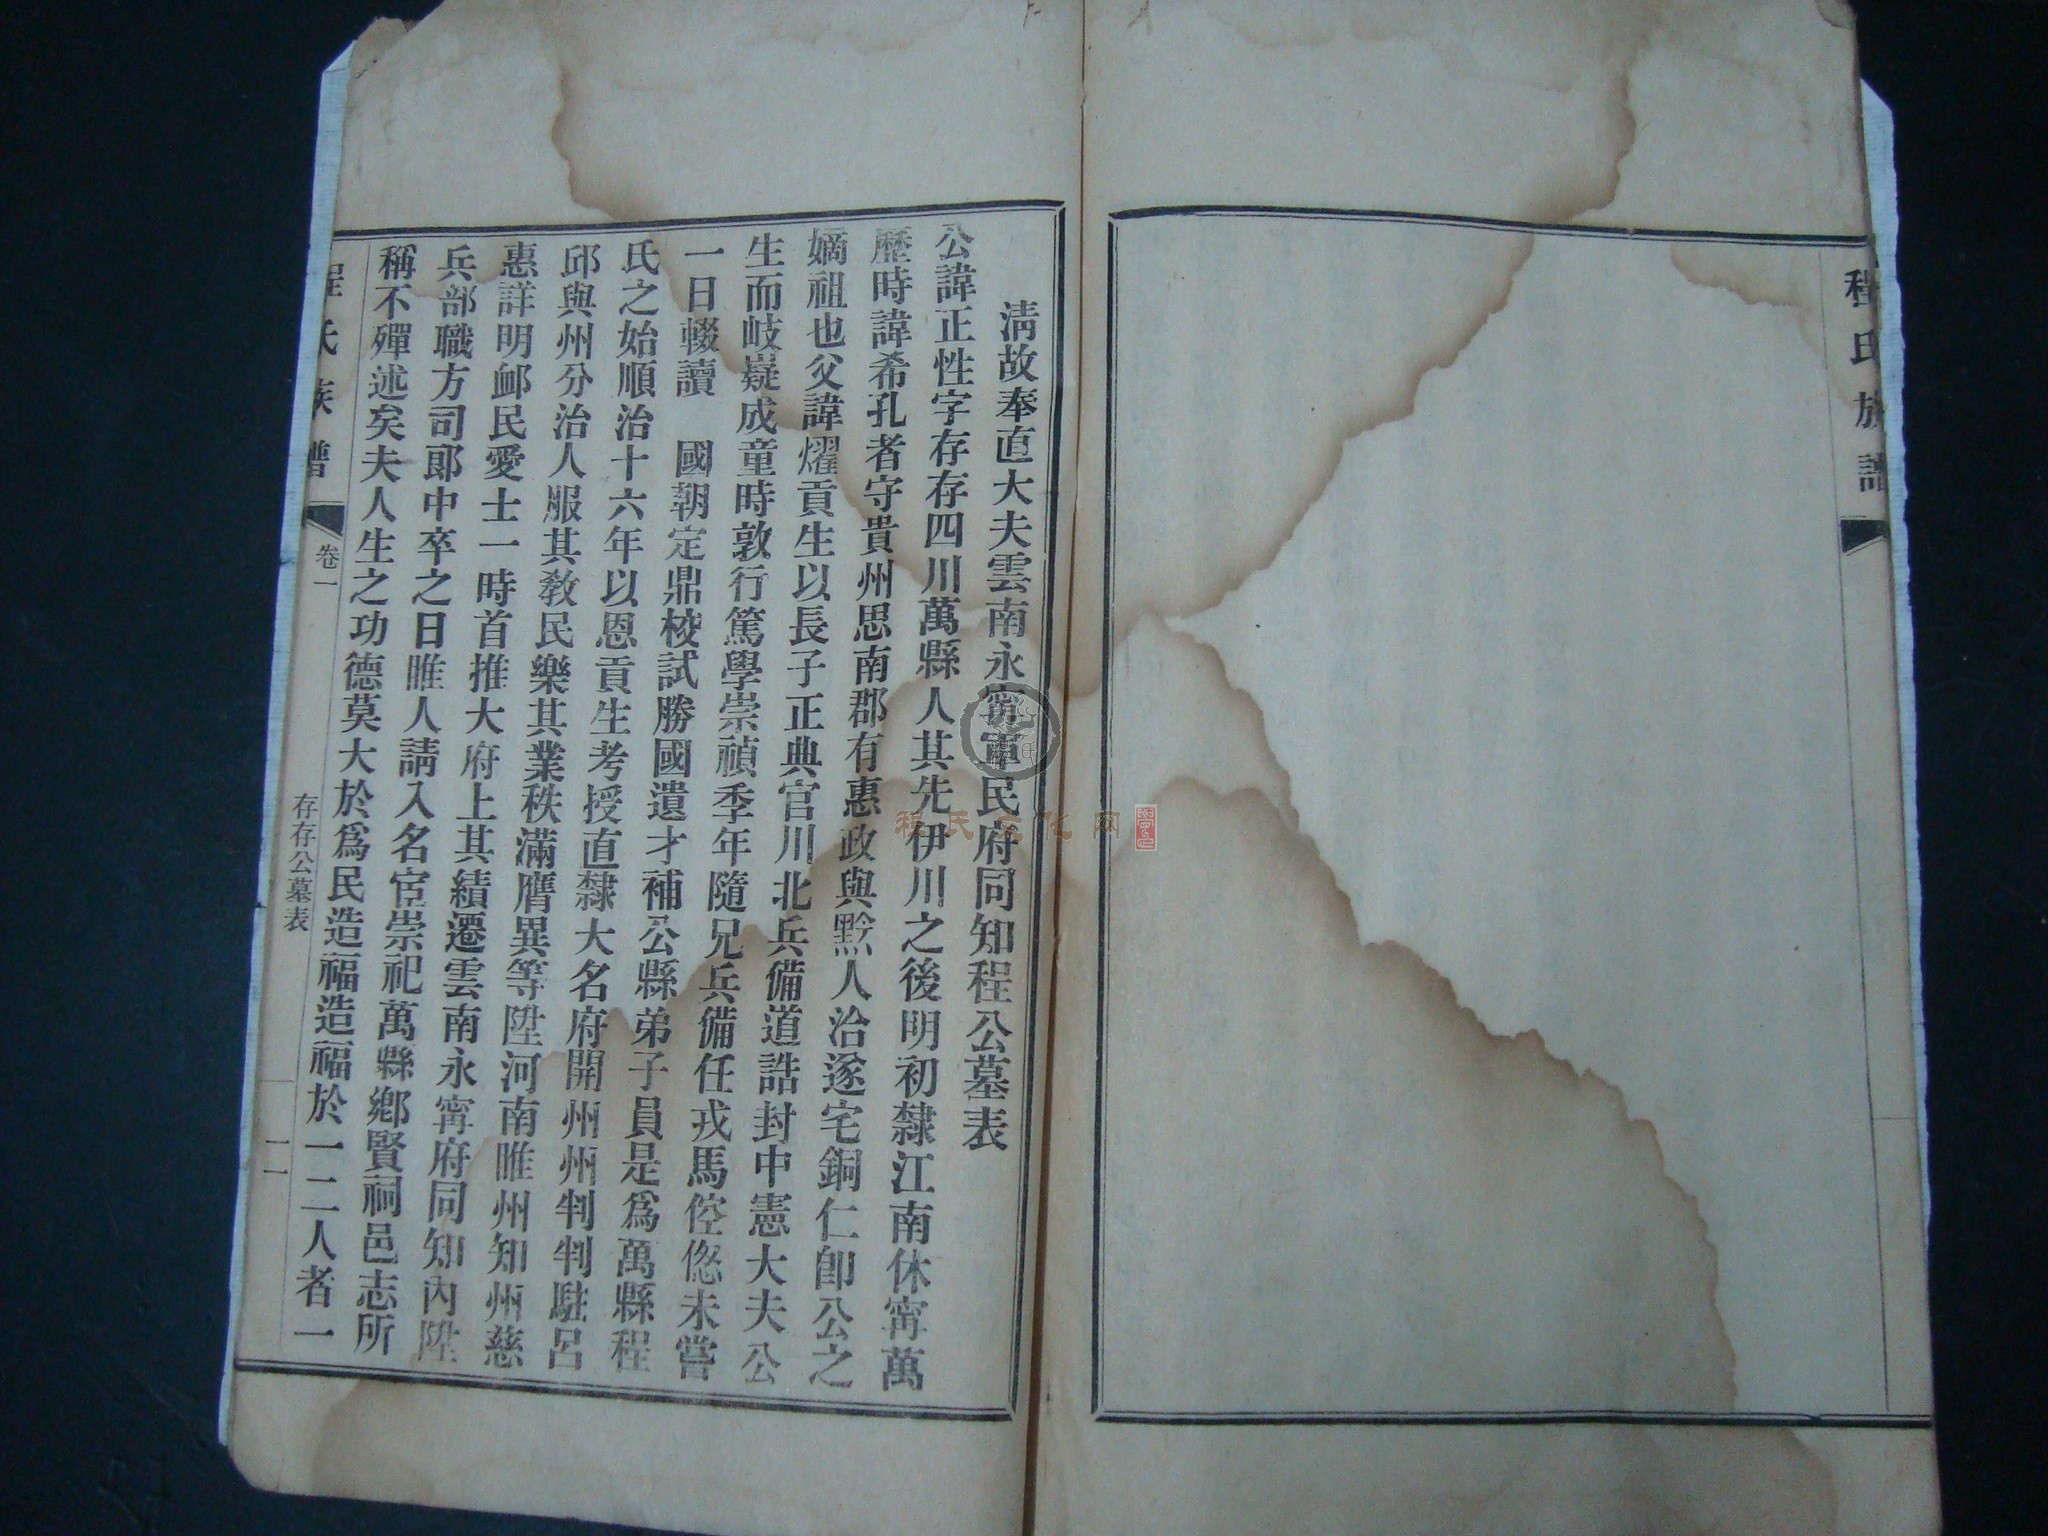 程氏族譜
清故奉直大夫雲南永寗軍民府同知程公墓表
公諱正性字存存四川萬縣人其先伊川之後明初隸江南休寗萬
歷時諱希孔者守貴州思南郡有惠政與黔人洽遂宅銅仁卽公之
嫡祖也父諱燿貢生以長子正典官川北兵備道誥封中憲大夫公
生而岐嶷成童時敦行篤學崇禎季年隨兄兵備任戎馬倥偬未嘗
一日輟讀 國朝定鼎校試勝國遺才補公縣弟子員是爲萬縣程
氏之始順治十六年以恩貢生考授直隸大名府開州州判判駐呂
邱與州分治人服其敎民樂其業秩滿膺異等陞河南睢州知州慈
惠詳明卹民愛士一時首推大府上其績遷雲南永寗府同知內陞
兵部職方司郞中卒之日睢人請入名宦崇祀萬縣鄉賢祠邑志所
稱不殫述矣夫人生之功德莫大於爲民造福造福於一二人者一
程氏族譜
卷一
存存公墓表
一一
程氏文化网